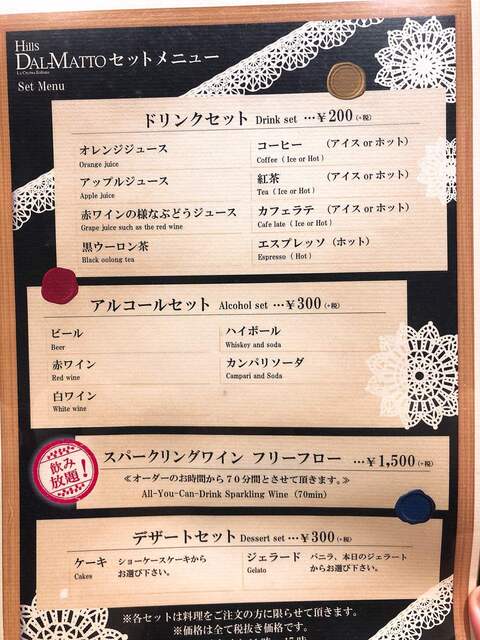 Hills
DAL-MATTO セットメニュー
LA CUCINA ITALIANA
Set Menu
ドリンクセット Drink set …￥200(+税)
オレンジジュース
Orange juice
アップルジュース
Apple juice
赤ワインの様なぶどうジュース
Grape juice such as the red wine
黒ウーロン茶
Black oolong tea
コーヒー （アイス or ホット）
Coffee ( Ice or Hot )
紅茶 （アイス or ホット）
Tea ( Ice or Hot )
カフェラテ （アイス or ホット）
Cafe late ( Ice or Hot )
エスプレッソ（ホット）
Espresso ( Hot )
アルコールセット Alcohol set …￥300(+税)
ビール
Beer
赤ワイン
Red wine
白ワイン
White wine
ハイボール
Whiskey and soda
カンパリソーダ
Campari and Soda
飲み
放題！
スパークリングワイン フリーフロー …￥1,500(+税)
≪オーダーのお時間から７０分間とさせて頂きます。≫
All-You-Can-Drink Sparkling Wine (70min)
デザートセット Dessert set …￥300(+税)
ケーキ ショーケースケーキから
Cakes お選び下さい。
ジェラード バニラ、本日のジェラート
Gelato からお選び下さい。
※各セットは料理をご注文の方に限らせて頂きます。
※価格は全て税抜き価格です。